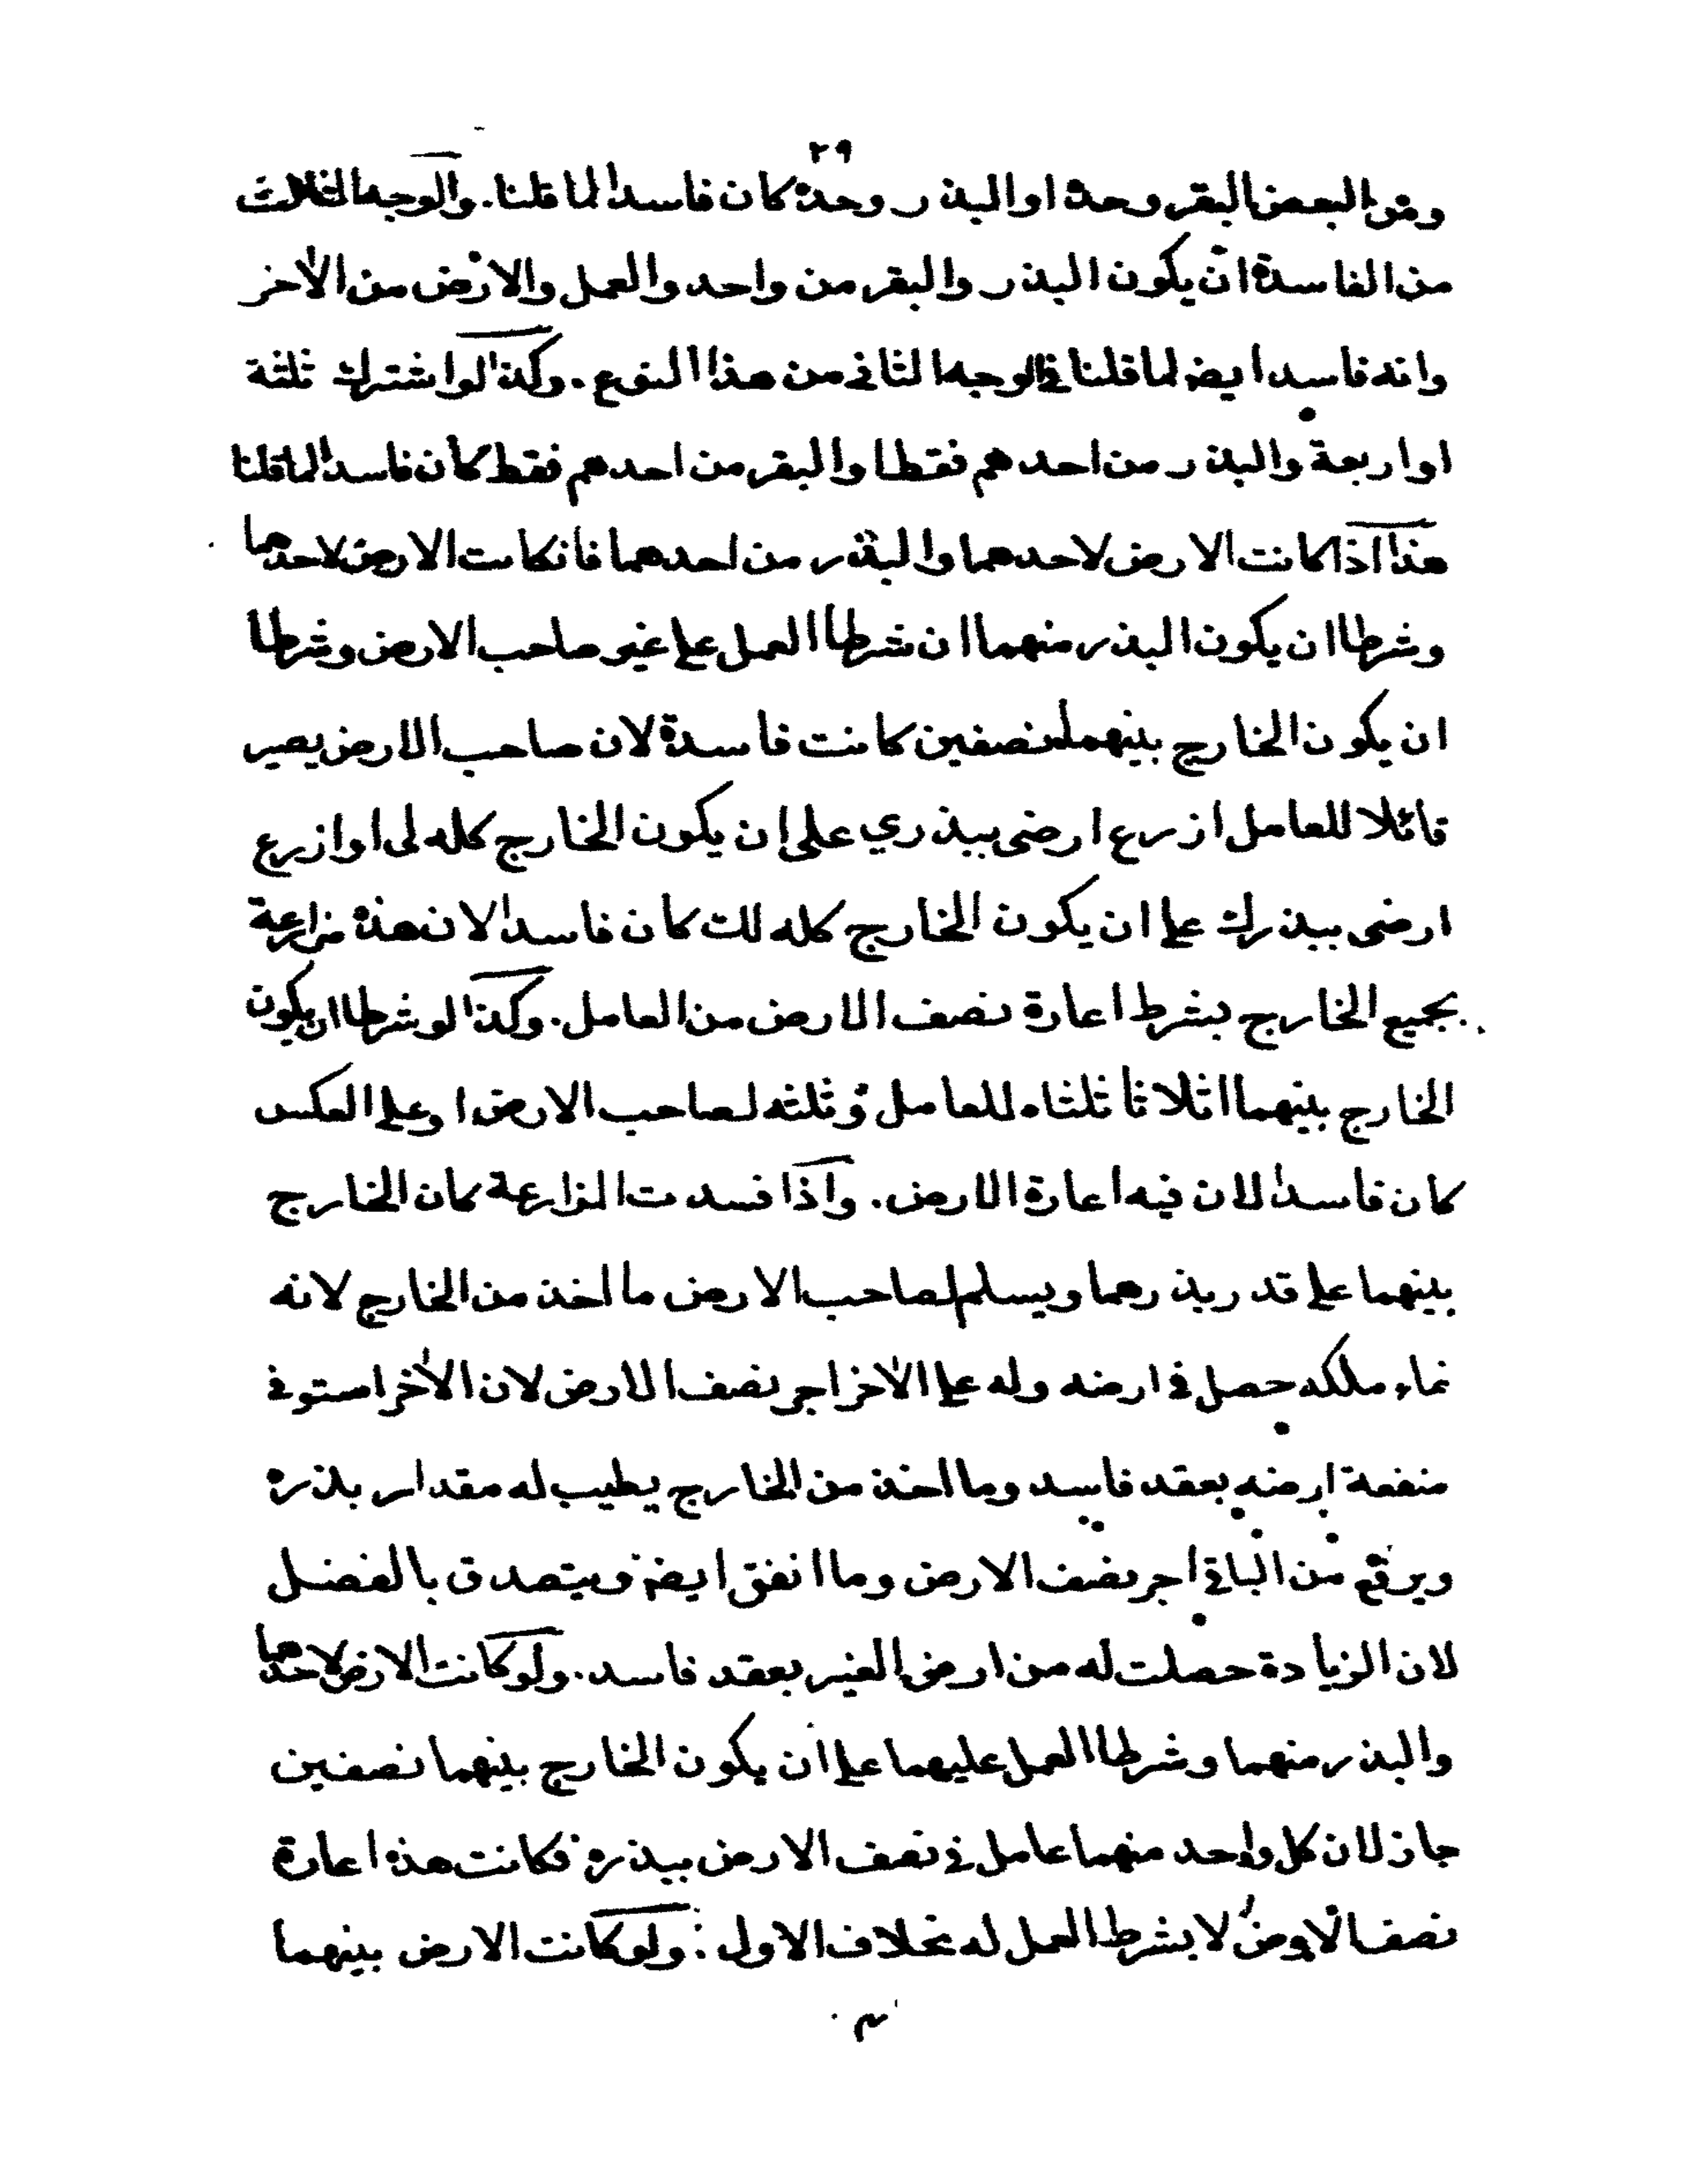 ٢٩
ومن البعض البقر وحده او البذر وحده كان فاسدا لما قلنا. والوجه الثالث
من الفاسدة ان يكون البذر والبقر من واحد والعمل والارض من الاخر
وانه فاسد ايضا لما قلنا في الوجه الثاني من هذا النوع. وكذا لو اشترك ثلثة
او اربعة والبذر من احدهم فقط او البقر من احدهم فقط كان فاسدا لما قلنا
هذا اذا كانت الارض لاحدهما والبذر من احدهما فان كانت الارض لاحدهما
وشرطا ان يكون البذر منهما ان شرطا العمل على غير صاحب الارض وشرطا
ان يكون الخارج بينهما نصفين كانت فاسدة لان صاحب الارض يصير
قائلا للعامل ازرع ارضى ببذري على ان يكون الخارج كله لى او ازرع
ارضى ببذرك على ان يكون الخارج كله لك كان فاسدا لان هذه مزارعة
بجميع الخارج بشرط اعارة نصف الارض من العامل. وكذا لو شرطا ان يكون
الخارج بينهما اثلاثا ثلثاه للعامل وثلثه لصاحب الارض او على العكس
كان فاسدا لان فيه اعارة الارض. واذا فسدت المزارعة كان الخارج
بينهما على قدر بذرهما ويسلم لصاحب الارض ما اخذ من الخارج لانه
نماء ملكه حصل في ارضه وله على الاخر اجر نصف الارض لان الاخر استوفى
منفعة ارضه بعقد فاسد وما اخذ من الخارج يطيب له مقدار بذره
ويرفع من الباقي اجر نصف الارض وما انفق ايضا ويتصدق بالفضل
لان الزيادة حصلت له من ارض الغير بعقد فاسد. ولو كانت الارض لاحدهما
والبذر منهما وشرطا العمل عليهما على ان يكون الخارج بينهما نصفين
جاز لان كل واحد منهما عامل في نصف الارض ببذره فكانت هذه اعارة
نصف الارض لا بشرط العمل له بخلاف الاول: ولو كانت الارض بينهما